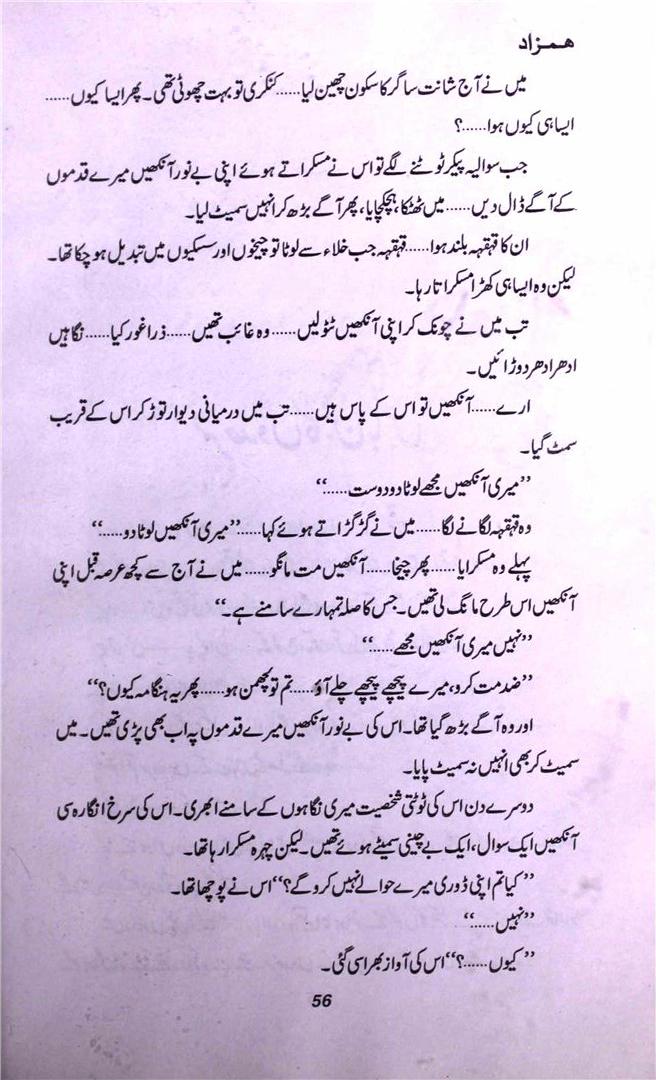 ھمزاد
میں نے آج شانت ساگر کا سکون چھین لیا...... کنکری تو بہت چھوٹی تھی۔ پھر ایسا کیوں......
ایسا ہی کیوں ہوا......؟
جب سوالیہ پیکر ٹوٹنے لگے تو اس نے مسکراتے ہوئے اپنی بے نور آنکھیں میرے قدموں
کے آگے ڈال دیں...... میں ٹھٹکا، ہچکچایا، پھر آگے بڑھ کر انہیں سمیٹ لیا۔
ان کا قہقہہ بلند ہوا...... قہقہہ جب خلاء سے لوٹا تو چیخوں اور سسکیوں میں تبدیل ہو چکا تھا۔
لیکن وہ ایسا ہی کھڑا مسکراتا رہا۔
تب میں نے چونک کر اپنی آنکھیں ٹٹولیں...... وہ غائب تھیں...... ذرا غور کیا...... نگاہیں
ادھر ادھر دوڑائیں۔
ارے...... آنکھیں تو اس کے پاس ہیں...... تب میں درمیانی دیوار توڑ کر اس کے قریب
سمٹ گیا۔
”میری آنکھیں مجھے لوٹا دو دوست......“
وہ قہقہہ لگانے لگا...... میں نے گڑگڑاتے ہوئے کہا...... ”میری آنکھیں لوٹا دو......“
پہلے وہ مسکرایا...... پھر چیخا...... آنکھیں مت مانگو...... میں نے آج سے کچھ عرصہ قبل اپنی
آنکھیں اس طرح مانگ لی تھیں۔ جس کا صلہ تمہارے سامنے ہے۔“
”نہیں میری آنکھیں مجھے......“
”ضد مت کرو، میرے پیچھے پیچھے چلے آؤ...... تم تو لچھمن ہو...... پھر یہ ہنگامہ کیوں؟“
اور وہ آگے بڑھ گیا تھا۔ اس کی بے نور آنکھیں میرے قدموں پہ اب بھی پڑی تھیں۔ میں
سمیٹ کر بھی انہیں نہ سمیٹ پایا۔
دوسرے دن اس کی ٹوٹتی شخصیت میری نگاہوں کے سامنے ابھری۔ اس کی سرخ انگارہ سی
آنکھیں ایک سوال، ایک بے چینی سمیٹے ہوئے تھیں۔ لیکن چہرہ مسکرا رہا تھا۔
”کیا تم اپنی ڈوری میرے حوالے نہیں کرو گے؟“ اس نے پوچھا تھا۔
”نہیں......“
”کیوں......؟“ اس کی آواز بھرا سی گئی۔
56